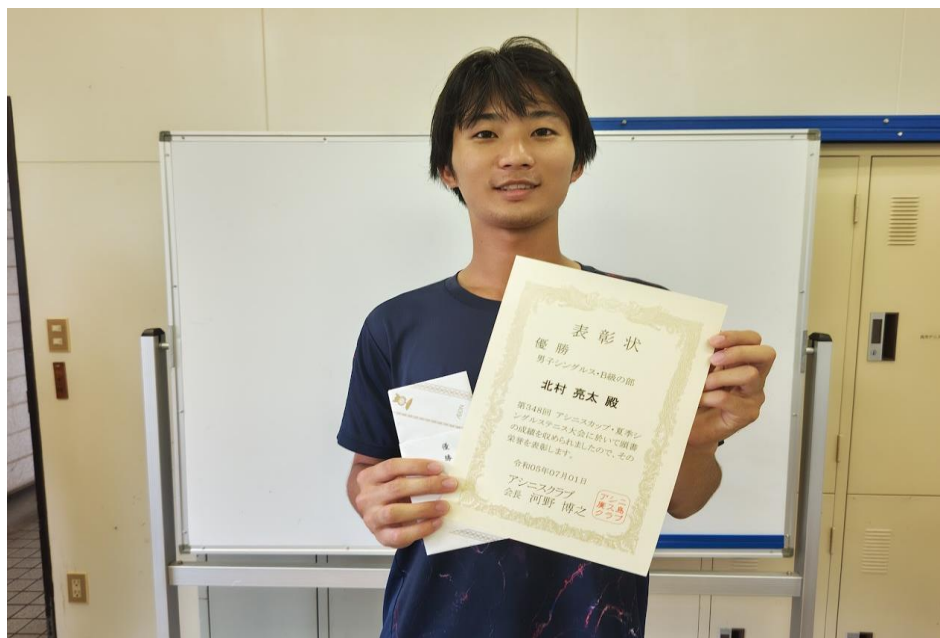 表彰状
優勝
男子シングルス・B級の部
北村 亮太 殿
第348回 アシニスカップ・夏季シ
ングルステニス大会に於いて頭書
の成績を収められましたので、その
栄誉を表彰します。
令和05年07月01日
アシニスクラブ
会長 河野 博之
優勝